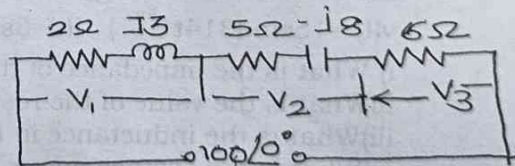 2Ω J3 5Ω -j8 6Ω
V₁ V₂ V3
100/0°